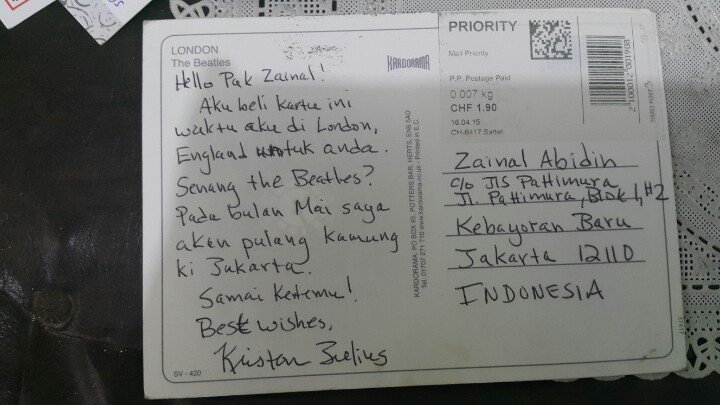 LONDON
The Beatles
Hello Pak Zainal!
Aku beli kartu ini
waktu aku di London,
England untuk anda.
Senang the Beatles?
Pada bulan Mai saya
akan pulang kamung
ki Jakarta.
Samai Ketemu!
Best wishes,
SV - 420
KARDORAMA
KARDORAMA, PO BOX 85, POTTERS BAR, HERTS, EN6 5AD
Tel. 01707 271 710 www.kardorama.co.uk - Printed in E.C.
PRIORITY
Mail Priority
P.P. Postage Paid
0.007 kg
CHF 1.90
16.04.15
CH-6417 Sattel
Zainal Abidin
c/o JIS Pattimura
Jl. Pattimura, Blok 1, #2
Kebayoran Baru
Jakarta 12110
INDONESIA